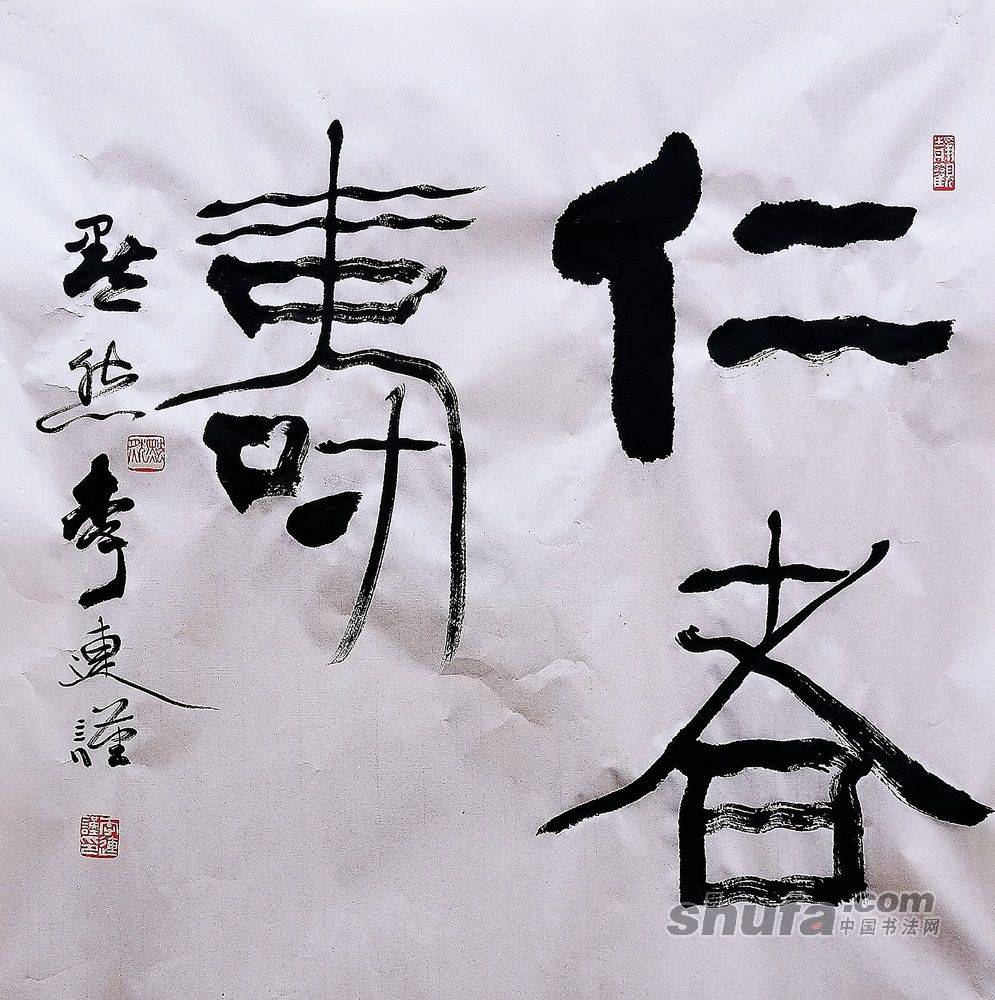 仁者
壽
默然李連謹
shufa.com
中国书法网